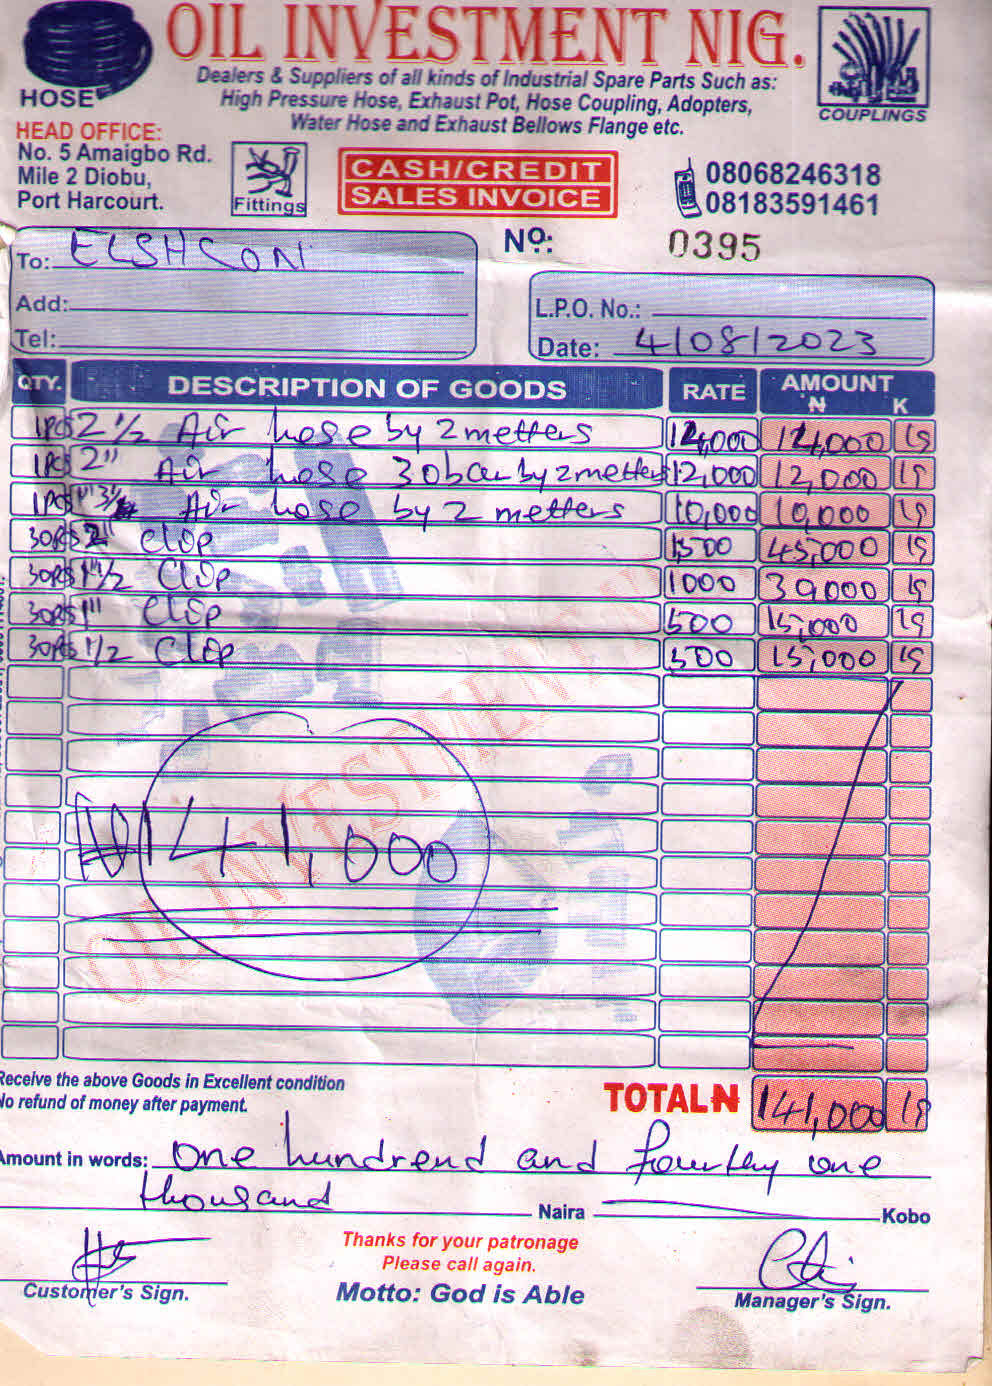 OIL INVESTMENT NIG.
Dealers & Suppliers of all kinds of Industrial Spare Parts Such as:
High Pressure Hose, Exhaust Pot, Hose Coupling, Adopters,
Water Hose and Exhaust Bellows Flange etc.
HOSE
COUPLINGS
HEAD OFFICE:
No. 5 Amaigbo Rd.
Mile 2 Diobu,
Port Harcourt.
Fittings
CASH/CREDIT
SALES INVOICE
08068246318
08183591461
No: 0395
To: ELSHCON
Add:
Tel:
L.P.O. No.:
Date: 4/08/2023
QTY. DESCRIPTION OF GOODS RATE AMOUNT ₦ K
1PCS 2 1/2 Air hose by 2 metters 14,000 14,000
1PCS 2" Air hose 30bar by 2 metters 12,000 12,000
1PCS Air hose by 2 metters 10,000 10,000
30PCS 2" clip 1500 45,000
30PCS 1"1/2 Clip 1000 30,000
30PCS 1" clip 500 15,000
30PCS 1/2 Clip 500 15,000
₦141,000
OIL INVESTMENT N
Receive the above Goods in Excellent condition
No refund of money after payment.
TOTAL₦ 141,000
Amount in words: one hundrend and fourthy one
thousand Naira Kobo
Customer's Sign.
Thanks for your patronage
Please call again.
Motto: God is Able
Manager's Sign.